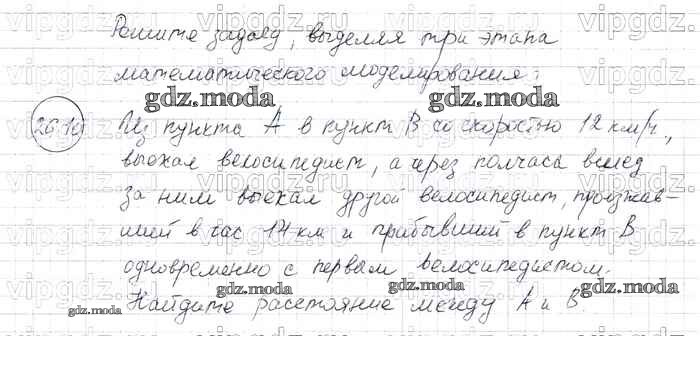 vipgdz.ru vipgdz.ru vipgdz.ru vipgdz.ru
Решите задачу, выделяя три этапа
математического моделирования:
gdz.moda gdz.moda
26.10 Из пункта А в пункт В со скоростью 12 км/ч,
выехал велосипедист, а через полчаса вслед
за ним выехал другой велосипедист, проезжав-
ший в час 14 км и прибывший в пункт В
одновременно с первым велосипедистом.
gdz.moda gdz.moda gdz.moda
Найдите расстояние между А и В
gdz.moda